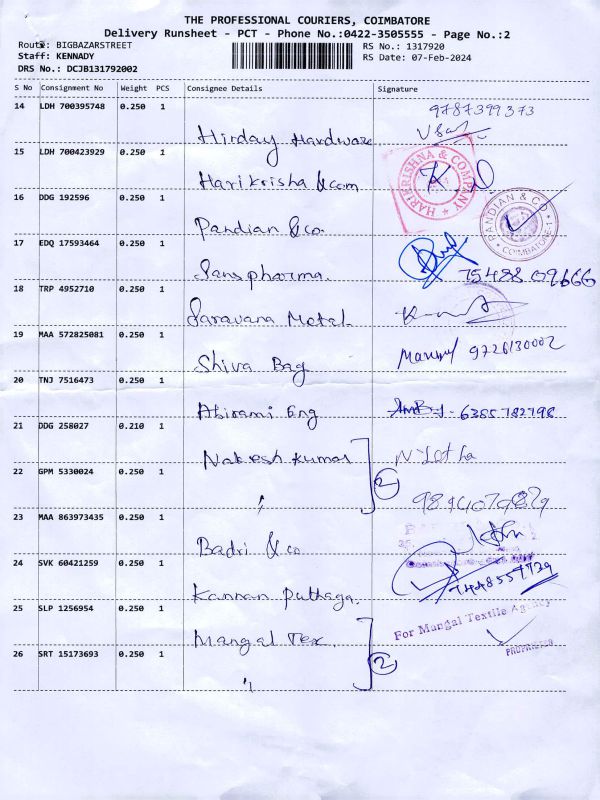 THE PROFESSIONAL COURIERS, COIMBATORE
Delivery Runsheet - PCT - Phone No.:0422-3505555 - Page No.:2
Route: BIGBAZARSTREET RS No.: 1317920
Staff: KENNADY RS Date: 07-Feb-2024
DRS No.: DCJB131792002
S No Consignment No Weight PCS Consignee Details Signature
14 LDH 700395748 0.250 1 Hirday Hardware 9787399373
15 LDH 700423929 0.250 1 Harikrisha & com HARI KRISHNA & COMPANY
16 DDG 192596 0.250 1 Pandian & co. PANDIAN & CO COIMBATORE
17 EDQ 17593464 0.250 1 Sans pharma. 75488 09666
18 TRP 4952710 0.250 1 Saravana Metal
19 MAA 572825081 0.250 1 Shiva Bag 9726130002
20 TNJ 7516473 0.250 1 Abirami Eng 6385782798
21 DDG 258027 0.210 1 Nakesh Kumar
22 GPM 5330024 0.250 1 " 2
23 MAA 863973435 0.250 1 Badri & co
24 SVK 60421259 0.250 1 Kannan Puthaga. 7448557729
25 SLP 1256954 0.250 1 Mangal Tex. For Mangal Textile Agency
PROPRIETER
26 SRT 15173693 0.250 1 " 2